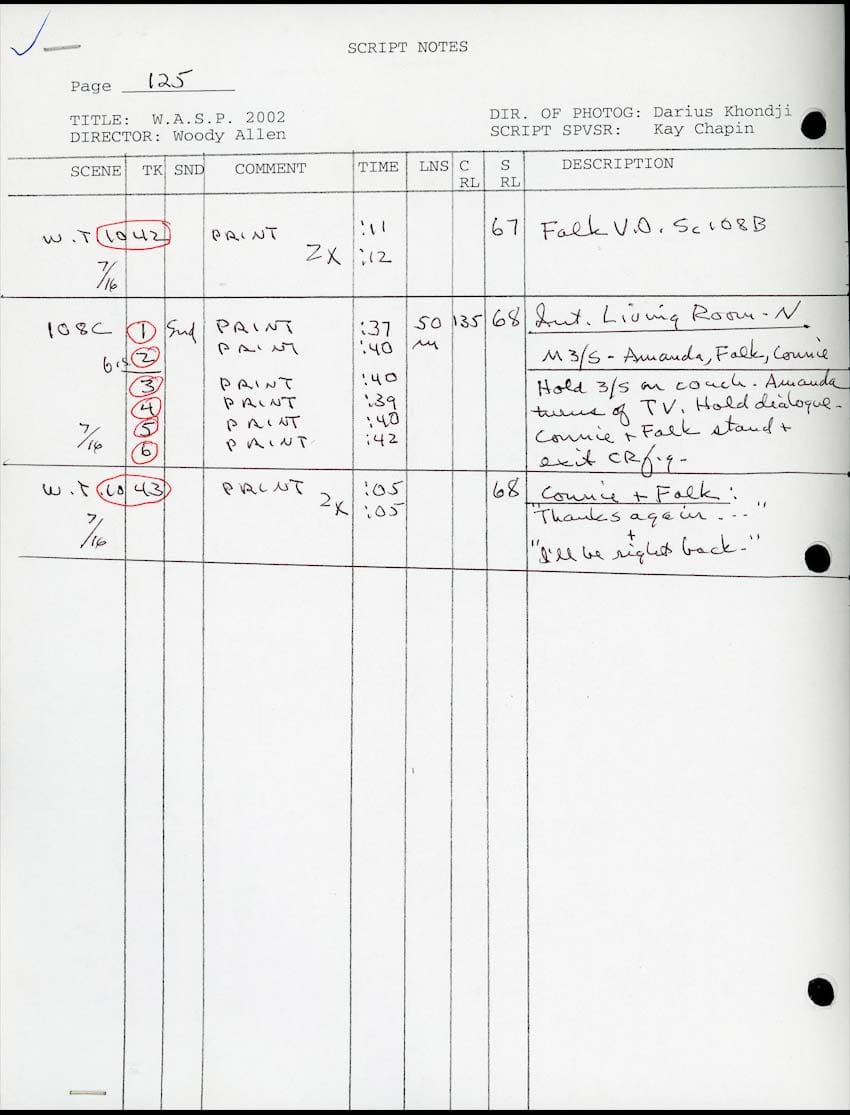 SCRIPT NOTES
Page 125
TITLE: W.A.S.P. 2002 DIR. OF PHOTOG: Darius Khondji
DIRECTOR: Woody Allen SCRIPT SPVSR: Kay Chapin
SCENE TK SND COMMENT TIME LNS C RL S RL DESCRIPTION
W.T 1042 PRINT :11 67 Falk V.O. Sc108B
2x :12
7/16
108C 1 Snd PRINT :37 50 135 68 Int. Living Room-N.
2 PRINT :40 M 3/S - Amanda, Falk, Connie
3 PRINT :40 Hold 3/S on couch. Amanda
4 PRINT :39 turns of TV. Hold dialogue-
5 PRINT :40 Connie + Falk stand +
7/16 6 PRINT :42 exit CR
W.T. 1043 PRINT :05 68 Connie + Falk:
2x :05 "Thanks again...."
7/16 +
"I'll be right back."